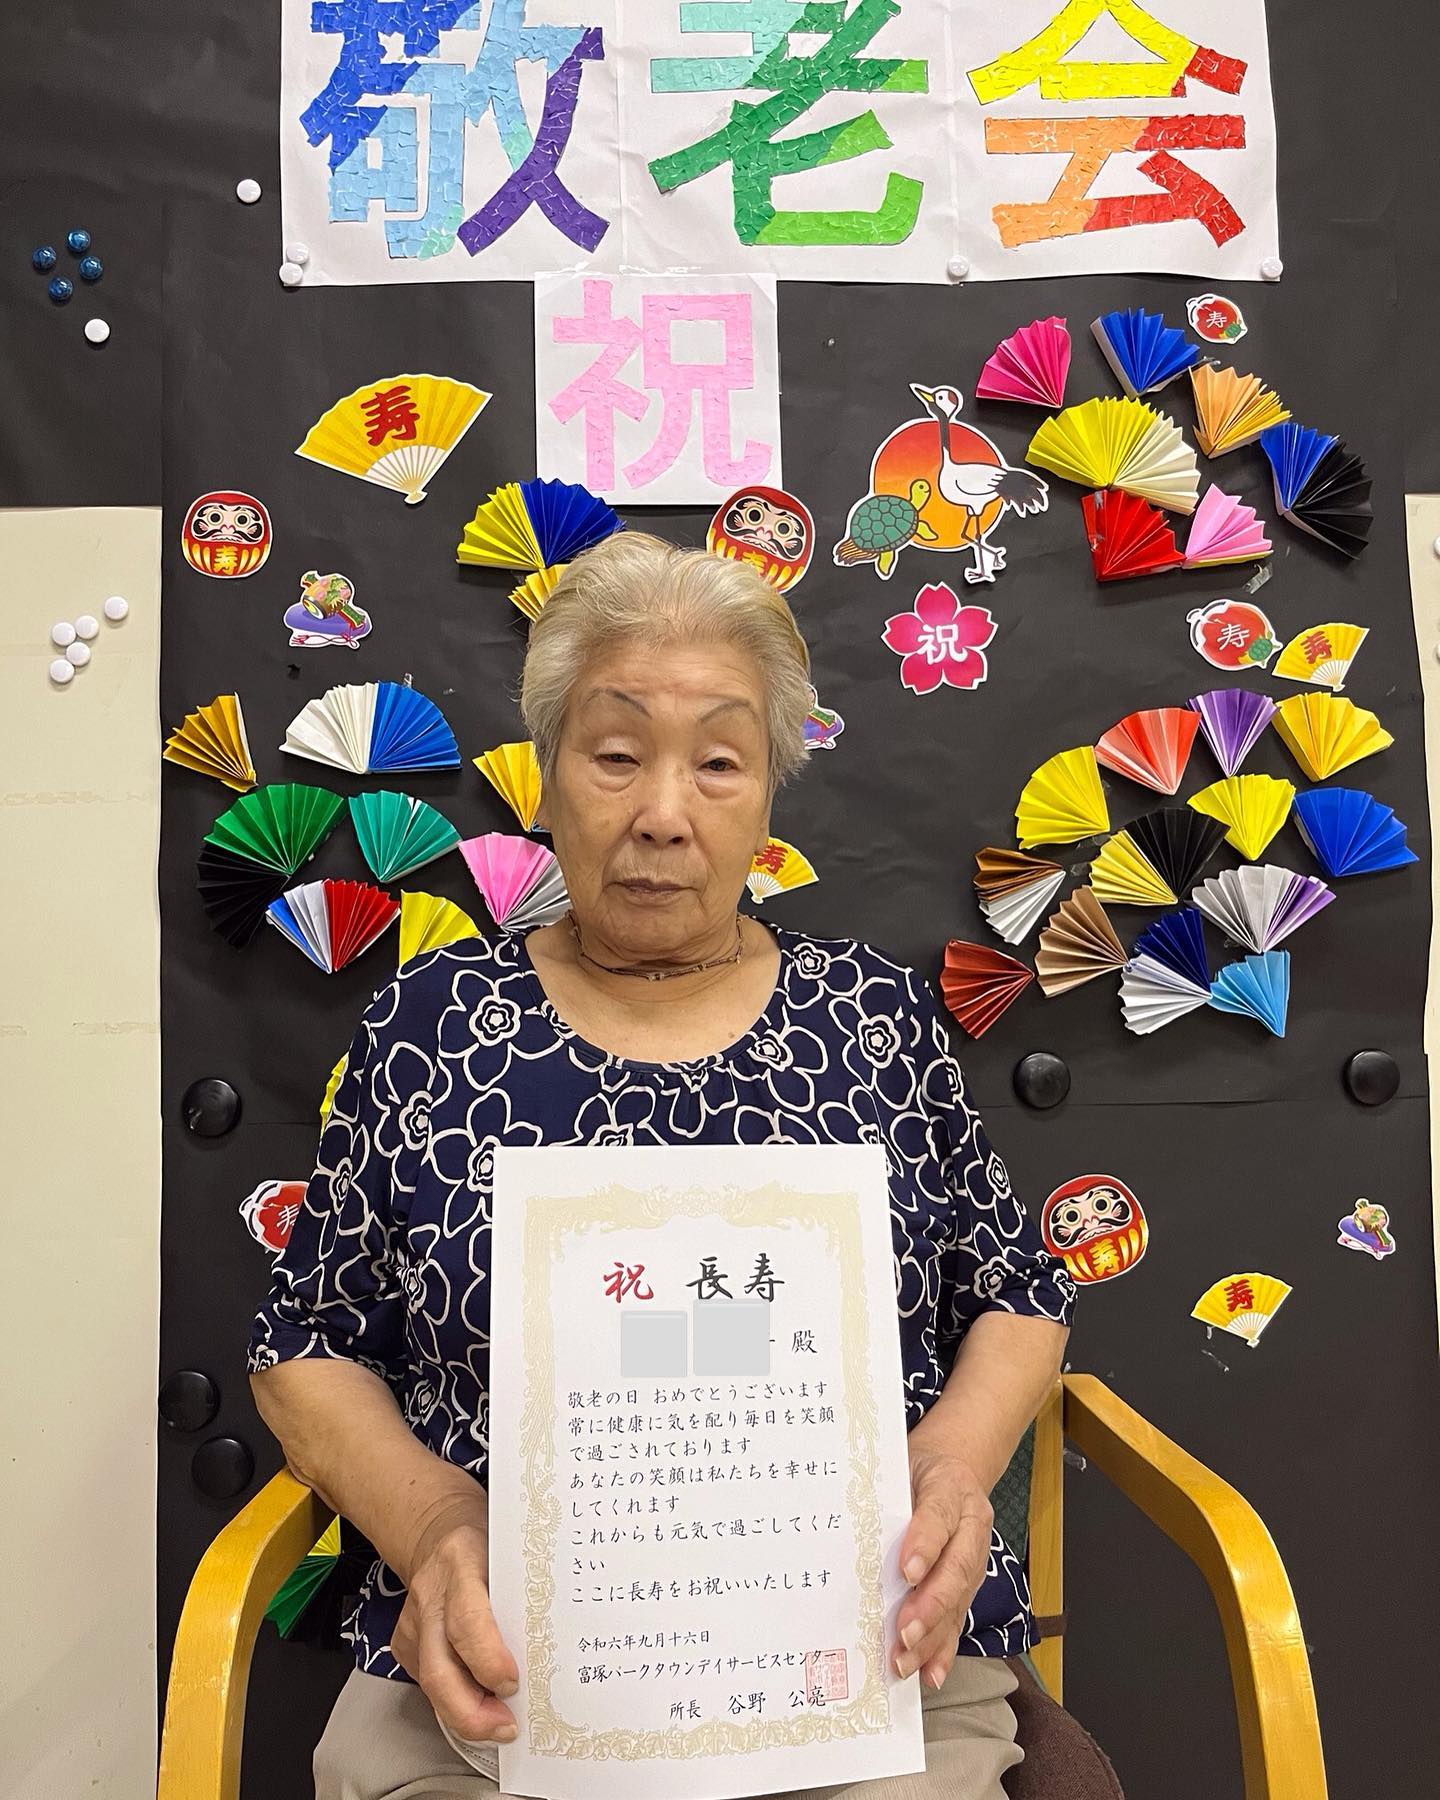 敬老会
祝
寿
寿
寿
寿
祝
寿
寿
寿
寿
寿
寿
祝 長寿
殿
敬老の日 おめでとうございます
常に健康に気を配り毎日を笑顔
で過ごされております
あなたの笑顔は私たちを幸せに
してくれます
これからも元気で過ごしてくだ
さい
ここに長寿をお祝いいたします
令和六年九月十六日
富塚パークタウンデイサービスセンター
所長 谷野 公亮